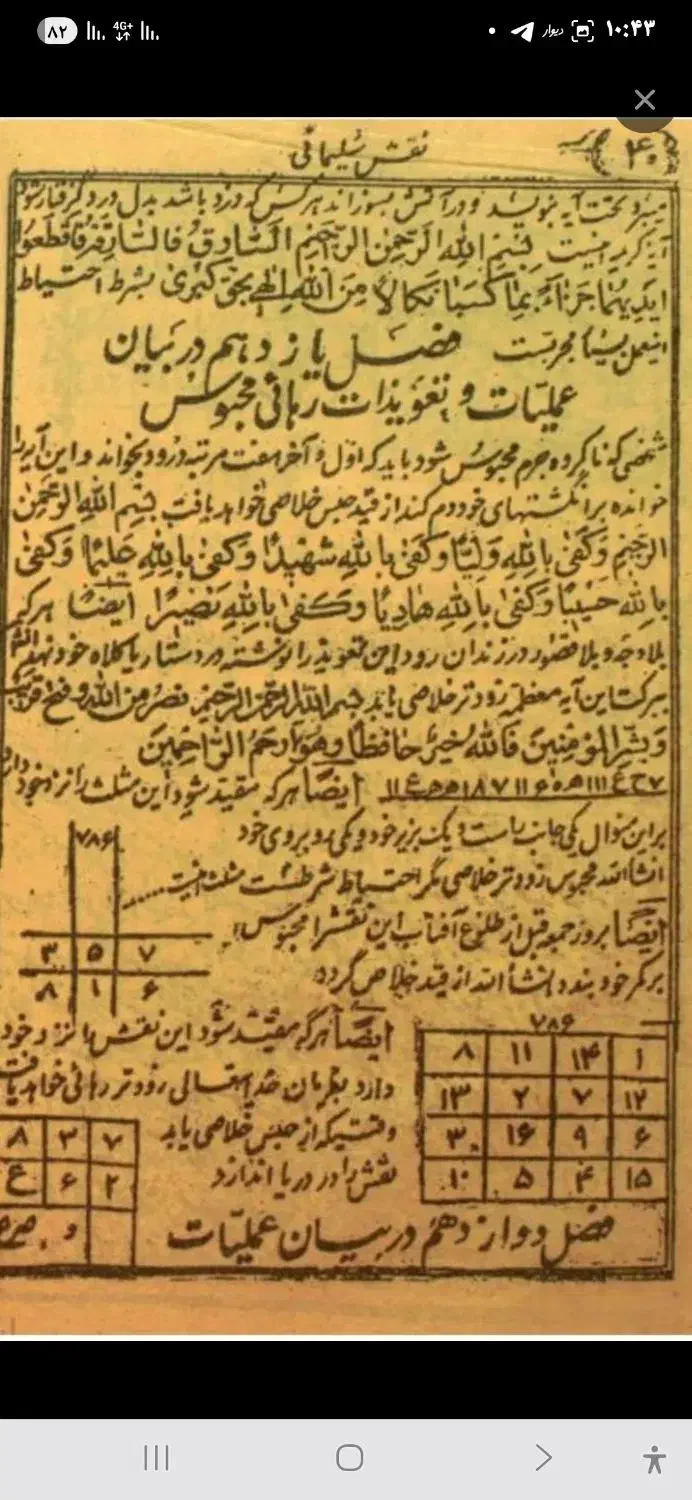 ۱۰:۴۳
دیوار
4G+
۸۲
۴۰
نقش سلیمانی
آیه کریمه اینست بِسْمِ اللهِ الرَّحْمٰنِ الرَّحِیْمِ اَلسَّارِقُ وَالسَّارِقَةُ فَاقْطَعُوْا
اَیْدِیَهُمَا جَزَاءً بِمَا کَسَبَا نَکَالًا مِنَ اللهِ الٰهی بحق کبری بشرط احتیاط
اینعمل بسیار مجربست فصل یازدهم در بیان
عملیات و تعویذات رهائی محبوس
شخصی که ناکرده جرم محبوس شود باید که اول و آخر هفت مرتبه درود بخواند و این آیه را
خوانده بر انگشتهای خود دم کند از قید حبس خلاصی خواهد یافت بِسْمِ اللهِ الرَّحْمٰنِ
الرَّحِیْمِ وَکَفٰی بِاللهِ وَلِیًّا وَکَفٰی بِاللهِ شَهِیْدًا وَکَفٰی بِاللهِ عَلِیْمًا وَکَفٰی
بِاللهِ حَسِیْبًا وَکَفٰی بِاللهِ هَادِیًا وَکَفٰی بِاللهِ نَصِیْرًا ایضًا هر که
بلا وجه و بلا قصور در زندان رود این تعویذ را نوشته در دستار یا کلاه خود نهد
ببرکت این آیه معظم زودتر خلاصی یابد بسم الله الرحمن الرحیم نصر من الله و فتح قریب
وَبَشِّرِ الْمُؤْمِنِیْنَ فَاللهُ خَیْرٌ حَافِظًا وَهُوَ اَرْحَمُ الرَّاحِمِیْنَ
ایضًا هر که مقید شود این مثلث را نزد خود دارد
بر این منوال یکی جانب راست و یک بزیر خود و یکی روبروی خود
انشاالله محبوس زودتر خلاصی مگر احتیاط شرطست مثلث اینست
ایضًا بروز جمعه قبل از طلوع آفتاب این نقش را محبوس
بر کمر خود بندد انشأالله از قید خلاص گردد
۷۸۶
۷ ۵ ۳
۶ ۱ ۸
۷۸۶
۱ ۱۴ ۱۱ ۸
۱۲ ۷ ۲ ۱۳
۶ ۹ ۱۶ ۳
۱۵ ۴ ۵ ۱۰
ایضًا هر که مقید شود این نقش را نزد خود
دارد بفرمان خدا تعالی زودتر رهائی خواهد یافت
وقتیکه از حبس خلاصی یابد
نقش را در دریا اندازد
۷ ۳ ۸
۲ ۶ ع
فصل دوازدهم در بیان عملیات